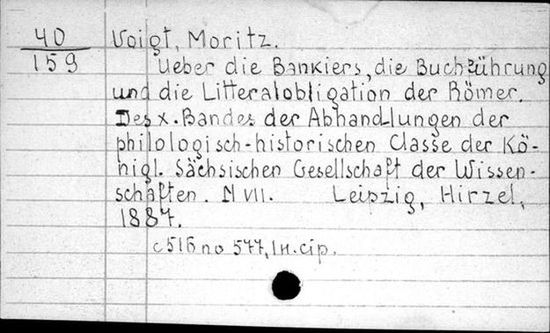 40 Voigt, Moritz.
159 Ueber die Bankiers, die Buchführung
und die Litteralobligation der Römer.
Des X. Bandes der Abhandlungen der
philologisch-historischen Classe der Kö-
nigl. Sächsischen Gesellschaft der Wissen-
schaften. N VII. Leipzig, Hirzel,
1887.
c 516 no 577, 1н. cip.